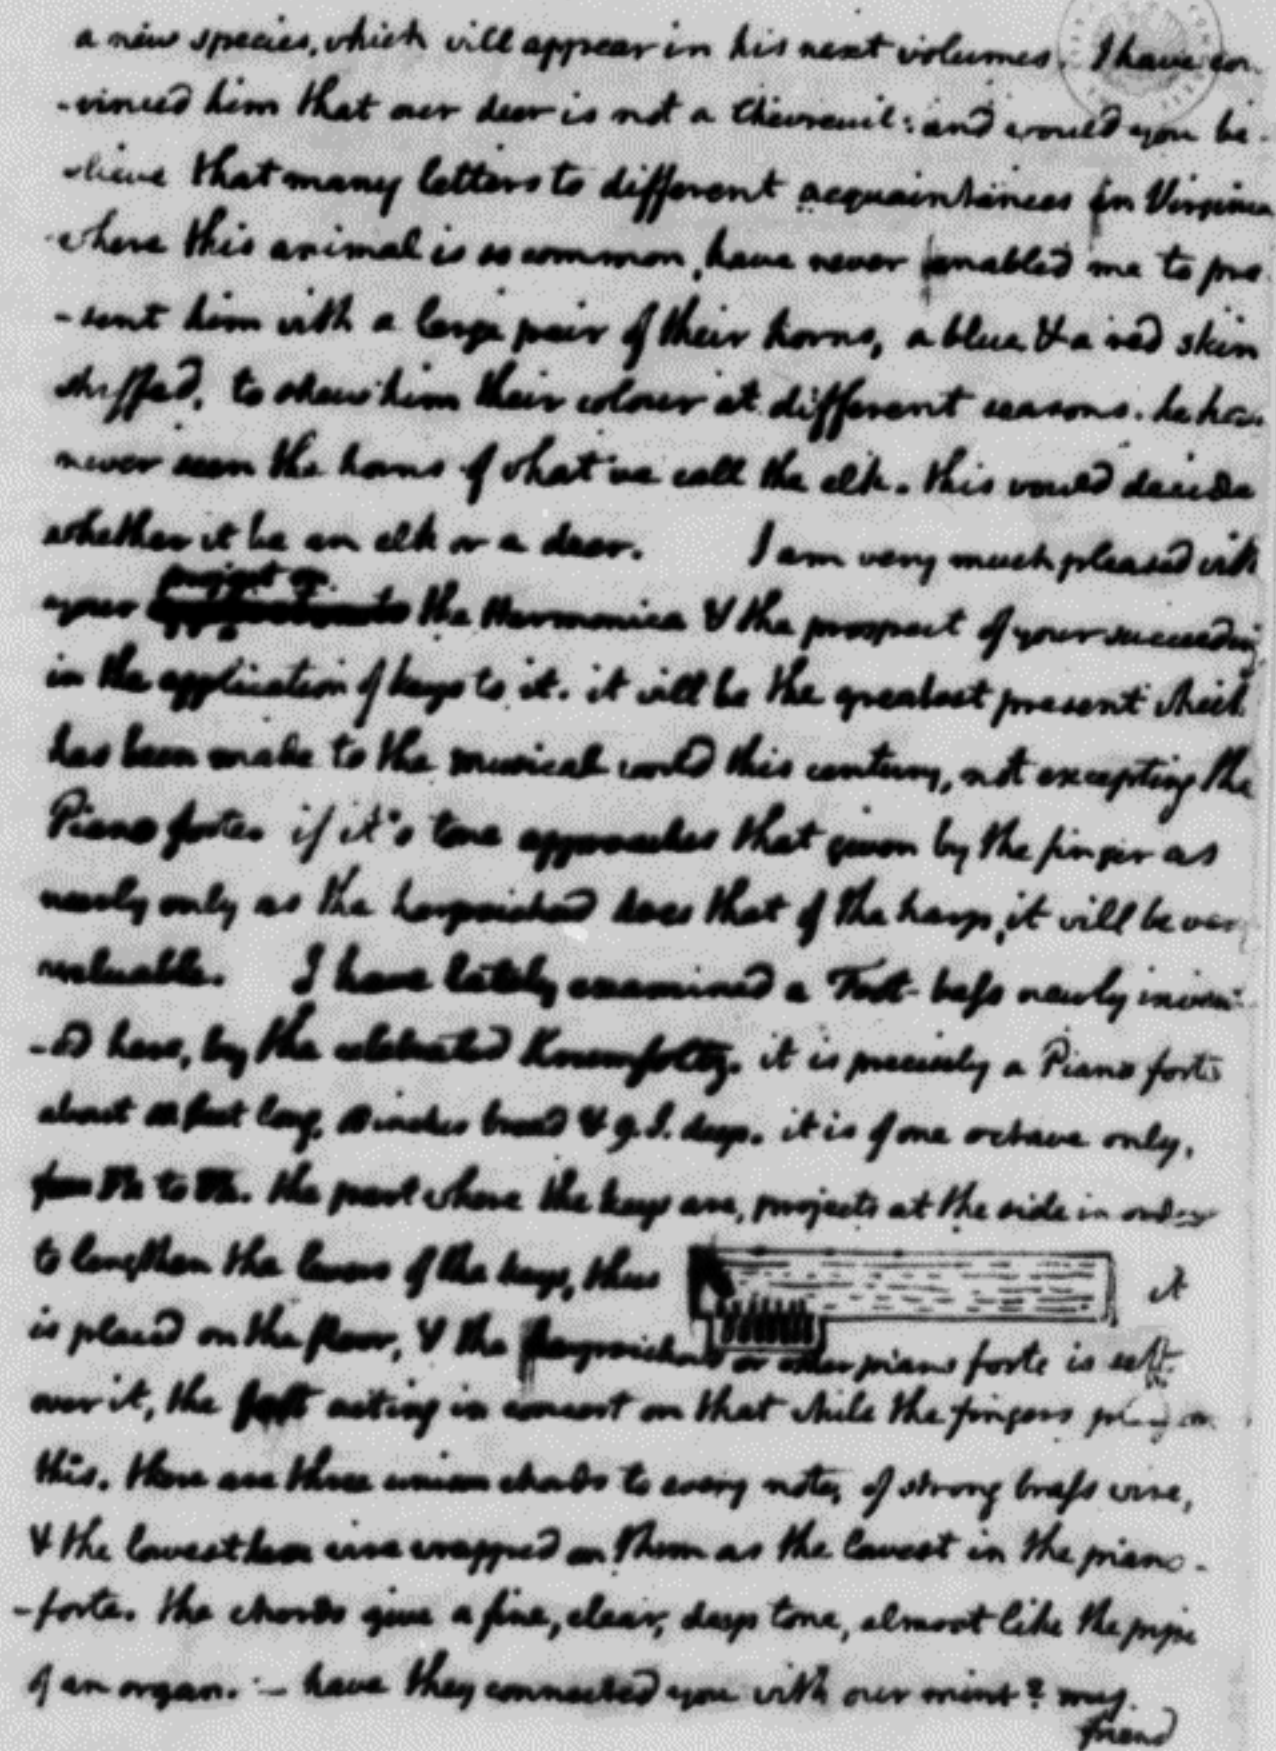 a new species, which will appear in his next volumes. I have con-
-vinced him that our deer is not a Chevreuil: and would you be-
-lieve that many letters to different acquaintances in Virginia
where this animal is so common, have never enabled me to pre-
-sent him with a large pair of their horns, a blue & a red skin
stuffed, to shew him their colour at different seasons. he has
never seen the horns of what we call the elk. this would decide
whether it be an elk or a deer. I am very much pleased with
project on
your the Harmonica & the prospect of your succeeding
in the application of keys to it. it will be the greatest present which
has been made to the musical world this century, not excepting the
Piano forte. if it's tone approaches that given by the finger as
nearly only as the harpsichord does that of the harp, it will be very
valuable. I have lately examined a Foot-bass newly invent-
-ed here, by the celebrated Krumfoltz. it is precisely a Piano forte
about feet long, inches broad & 9. I. deep. it is of one octave only,
from Fa to Fa. the part where the keys are, projects at the side in order
to lengthen the levers of the keys, thus it
is placed on the floor, & the harpsichord or other piano forte is set
over it, the foot acting in concert on that while the fingers play on
this. there are three unison chords to every note, of strong brass wire,
& the lowest have wire wrapped on them as the lowest in the piano-
-forte. the chords give a fine, clear, deep tone, almost like the pipe
of an organ. — have they connected you with our mint? my
friend